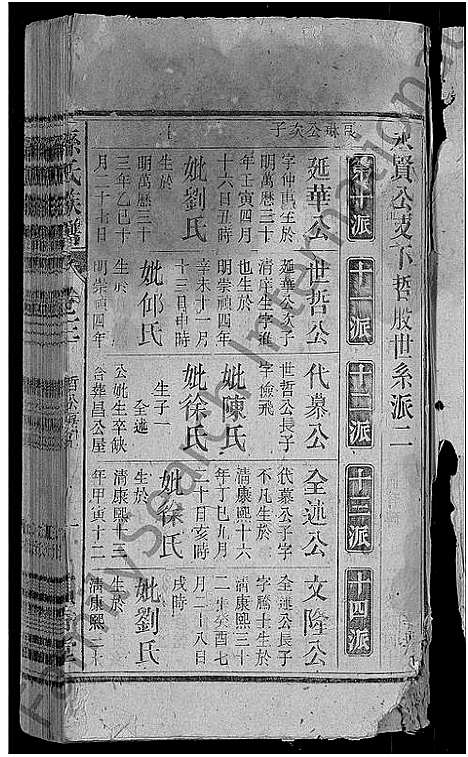 永賢公支下哲股世系派二
第十派
十一派
十二派
十三派
十四派
良琳公次子
延華公
明萬曆三十
年壬寅四月
十六日丑時
妣劉氏
生於
明萬曆三十
三年乙巳十
月二十七日
世哲公
延華公子
清庠生字
也生於
明崇禎四年
辛未十一月
十三日申時
妣邱氏
生於
明崇禎四年
代慕公
世哲公長子
字儉飛
妣陳氏
妣徐氏
生子一
全述
公妣生卒缺
合葬昌公屋
全述公
代慕公子字
不凡生於
清康熙十六
年丁巳九月
二十日亥時
妣徐氏
生於
清康熙十三
年甲寅十二
文隆公
全述公長子
字騰士生於
清康熙三十
二年癸酉七
月二十八日
戌時
妣劉氏
生於
清康熙三十
孫氏族譜
卷三
Mysearch International